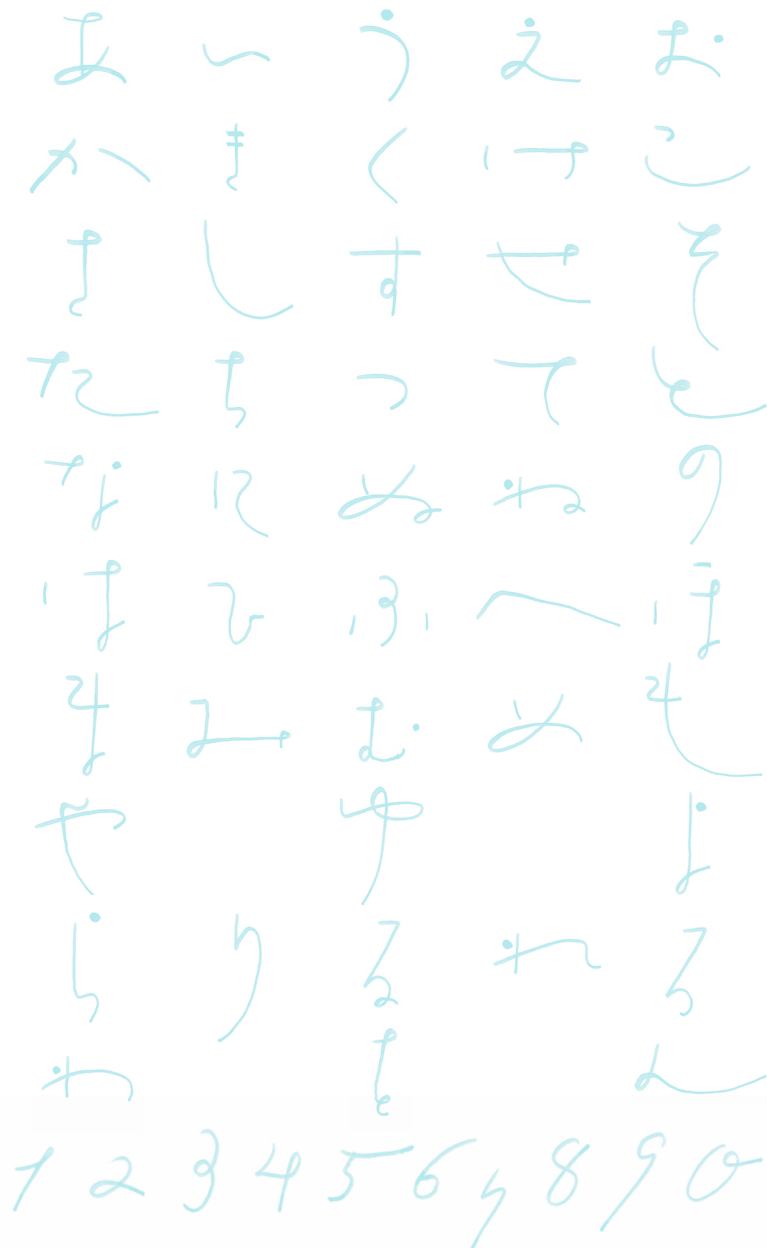 あ い う え お
か き く け こ
さ し す せ そ
た ち つ て と
な に ぬ ね の
は ひ ふ へ ほ
ま み む め も
や ゆ よ
ら り る れ ろ
わ を ん
1 2 3 4 5 6 7 8 9 0